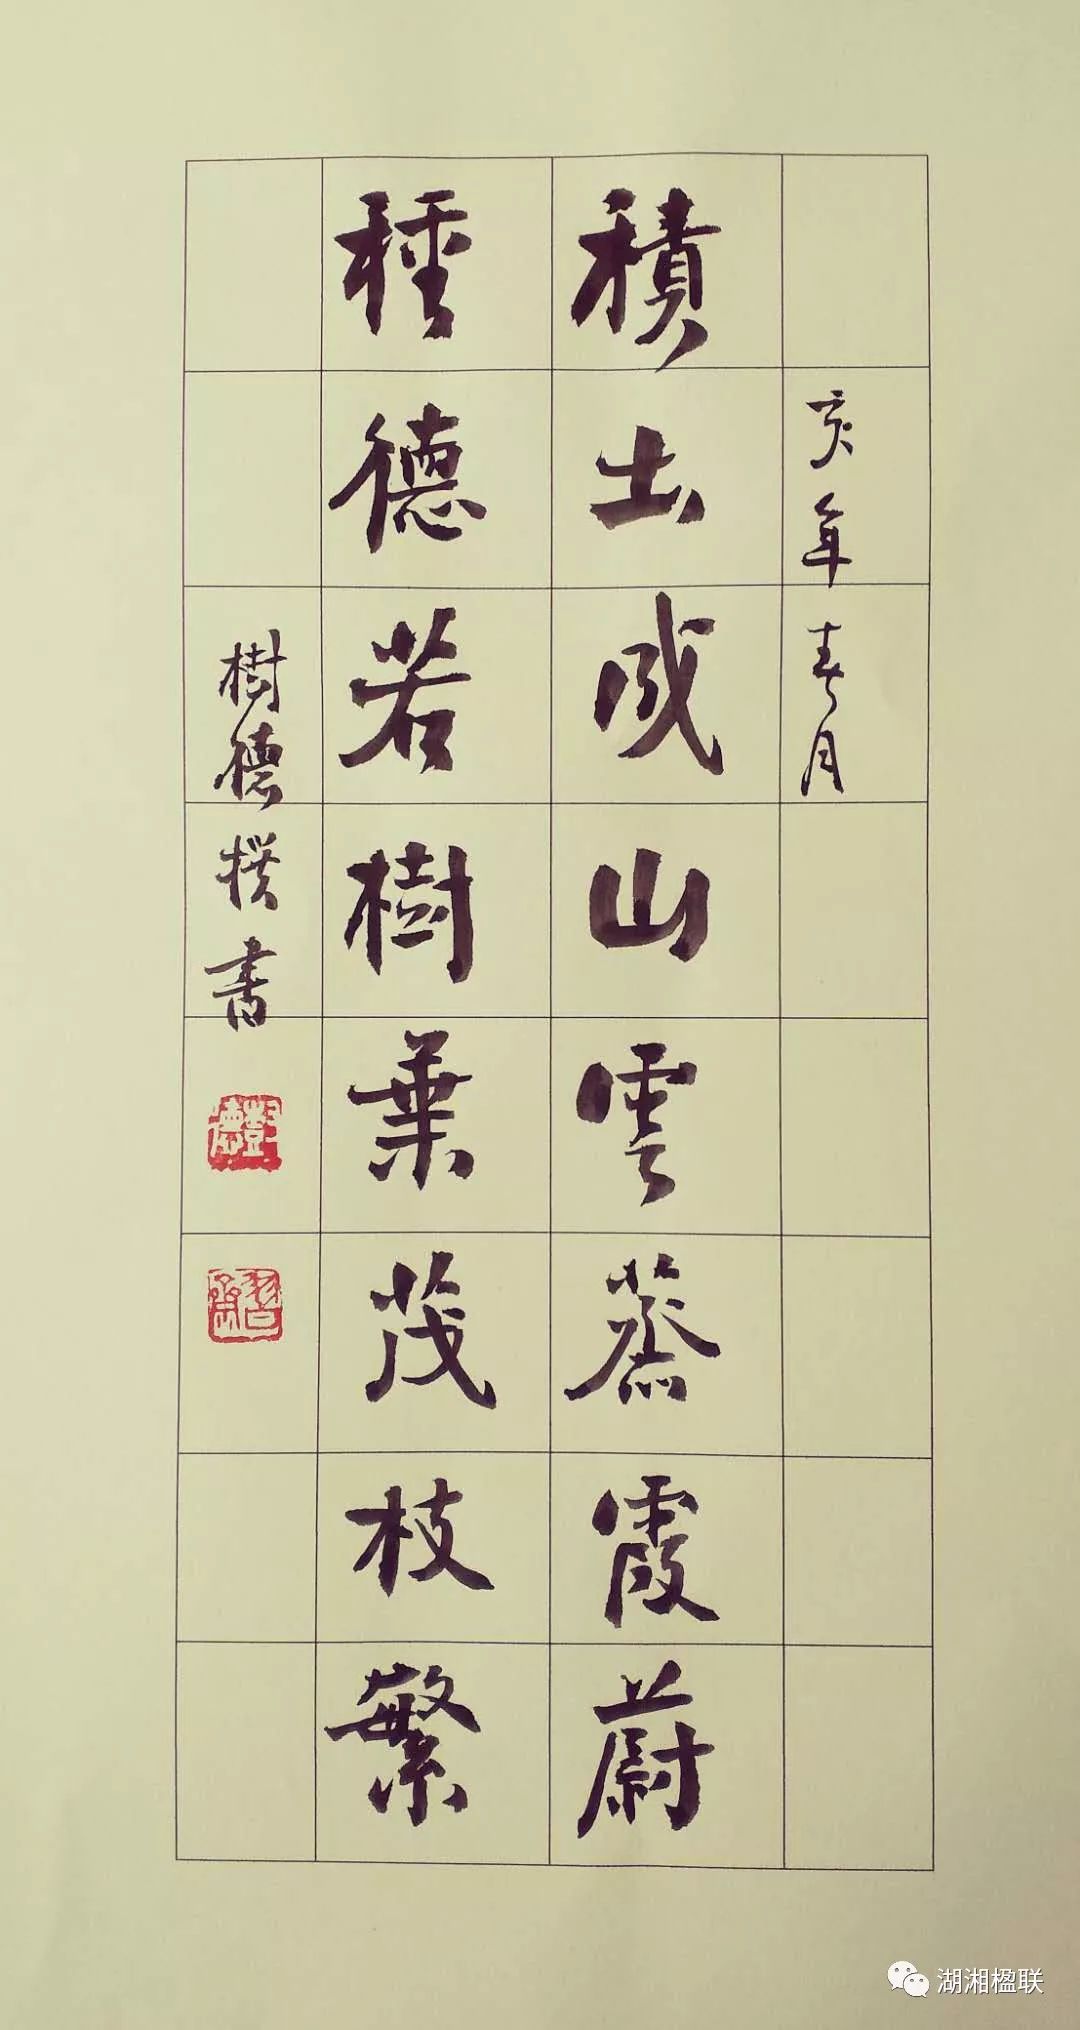 亥年春月
積土成山雲蒸霞蔚
種德若樹葉茂枝繁
樹德撰書
湖湘楹联